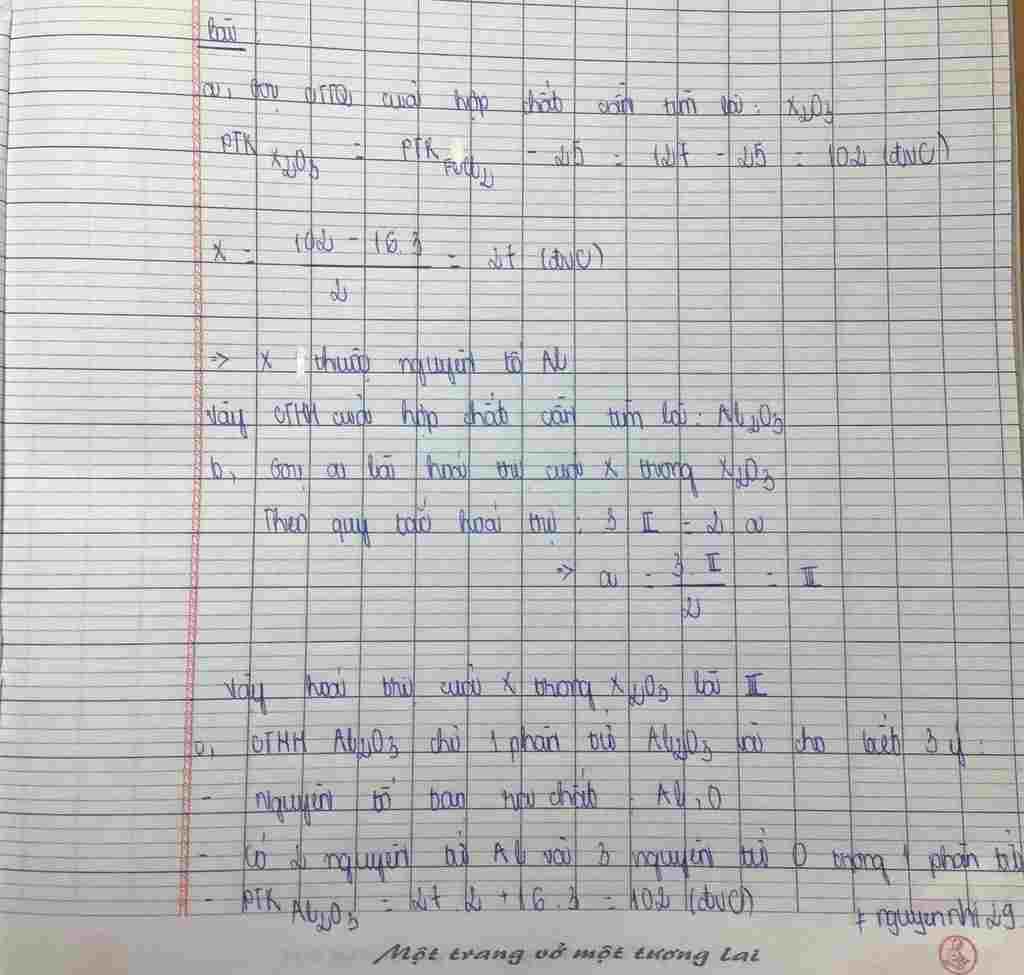 Bài
a, Gọi CTTQ của hợp chất cần tìm là: X₂O₃
PTK X₂O₃ = PTK FeCl₂ - 25 = 127 - 25 = 102 (đvC)
X = (102 - 16.3) / 2 = 27 (đvC)
=> X thuộc nguyên tố Al
Vậy CTHH của hợp chất cần tìm là: Al₂O₃
b, Gọi a là hoá trị của X trong X₂O₃
Theo quy tắc hoá trị: 3 II = 2 a
=> a = (3 . II) / 2 = III
Vậy hoá trị của X trong X₂O₃ là III
c, CTHH Al₂O₃ chỉ 1 phân tử Al₂O₃ và cho biết 3 ý:
- Nguyên tố tạo nên chất: Al, O
- Có 2 nguyên tử Al và 3 nguyên tử O trong 1 phân tử
- PTK Al₂O₃ = 27 . 2 + 16 . 3 = 102 (đvC)
# nguyennhi29
Một trang vở một tương lai